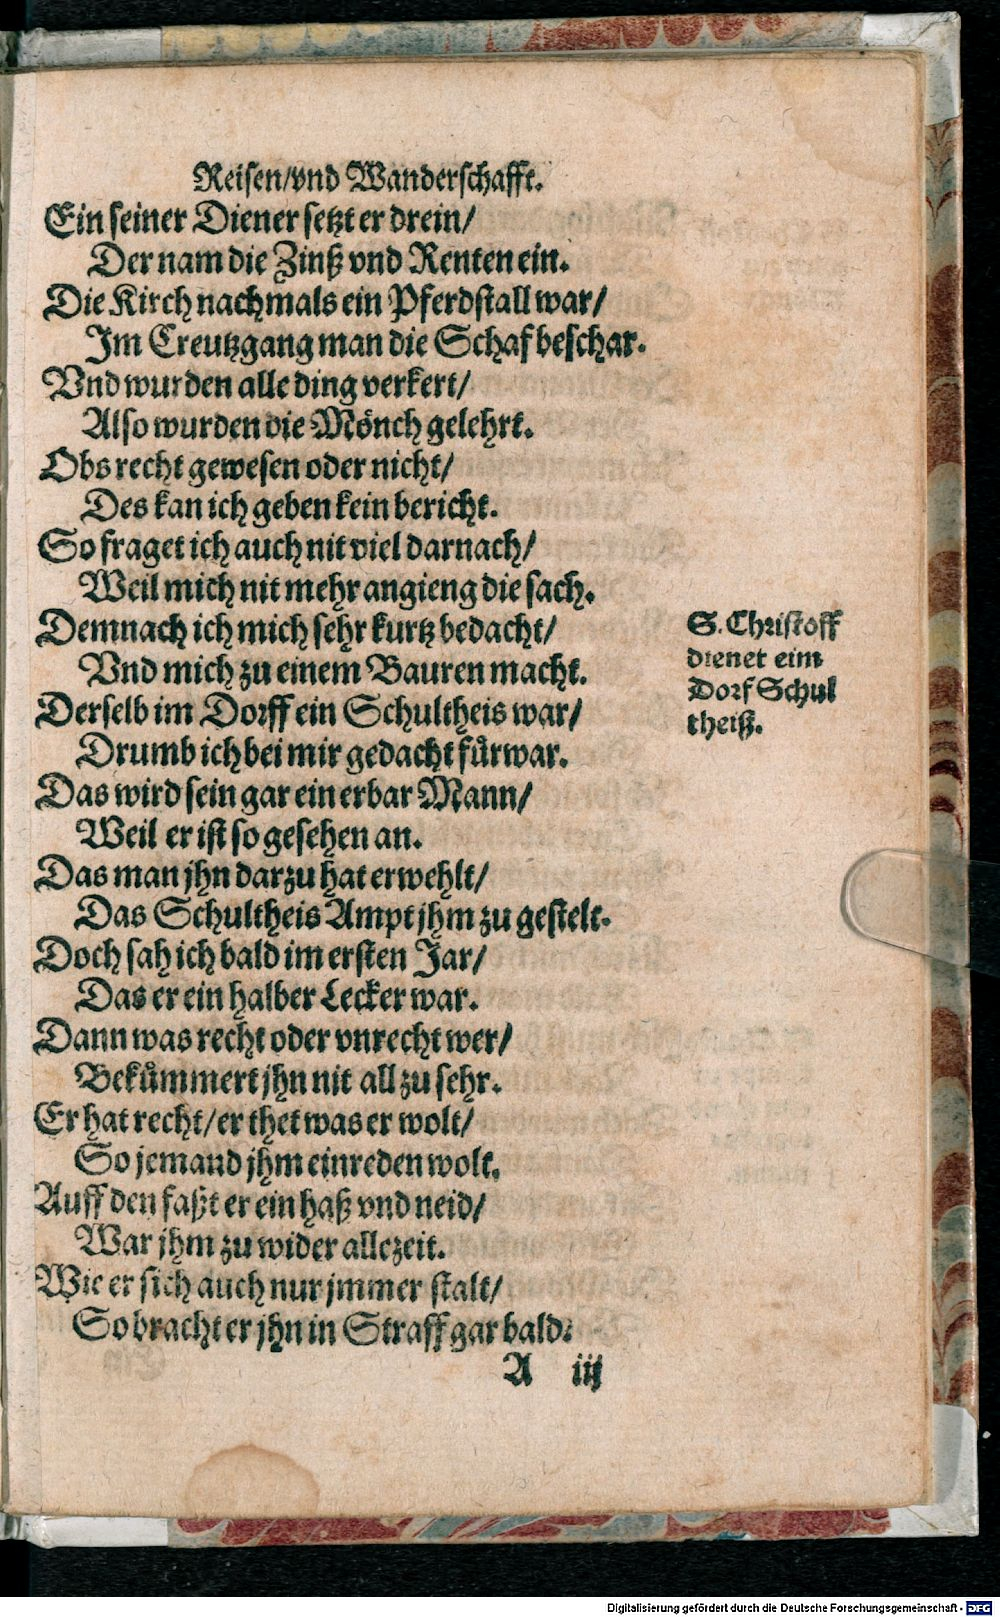 Reisen/vnd Wanderschafft.
Ein seiner Diener setzt er drein/
Der nam die Zinß vnd Renten ein.
Die Kirch nachmals ein Pferdstall war/
Im Creutzgang man die Schaf beschar.
Vnd wurden alle ding verkert/
Also wurden die Mönch gelehrt.
Obs recht gewesen oder nicht/
Des kan ich geben kein bericht.
So fraget ich auch nit viel darnach/
Weil mich nit mehr angieng die sach.
Demnach ich mich sehr kurtz bedacht/
Vnd mich zu einem Bauren macht.
Derselb im Dorff ein Schultheis war/
Drumb ich bei mir gedacht fürwar.
Das wird sein gar ein erbar Mann/
Weil er ist so gesehen an.
Das man jhn darzu hat erwehlt/
Das Schultheis Ampt jhm zu gestelt.
Doch sah ich bald im ersten Jar/
Das er ein halber Lecker war.
Dann was recht oder vnrecht wer/
Bekümmert jhn nit all zu sehr.
Er hat recht/er thet was er wolt/
So jemand jhm einreden wolt.
Auff den faßt er ein haß vnd neid/
War jhm zu wider allezeit.
Wie er sich auch nur jmmer stalt/
So bracht er jhn in Straff gar bald.
A iij
S. Christoff
dienet eim
Dorf Schul
theiß.
Digitalisierung gefördert durch die Deutsche Forschungsgemeinschaft - DFG